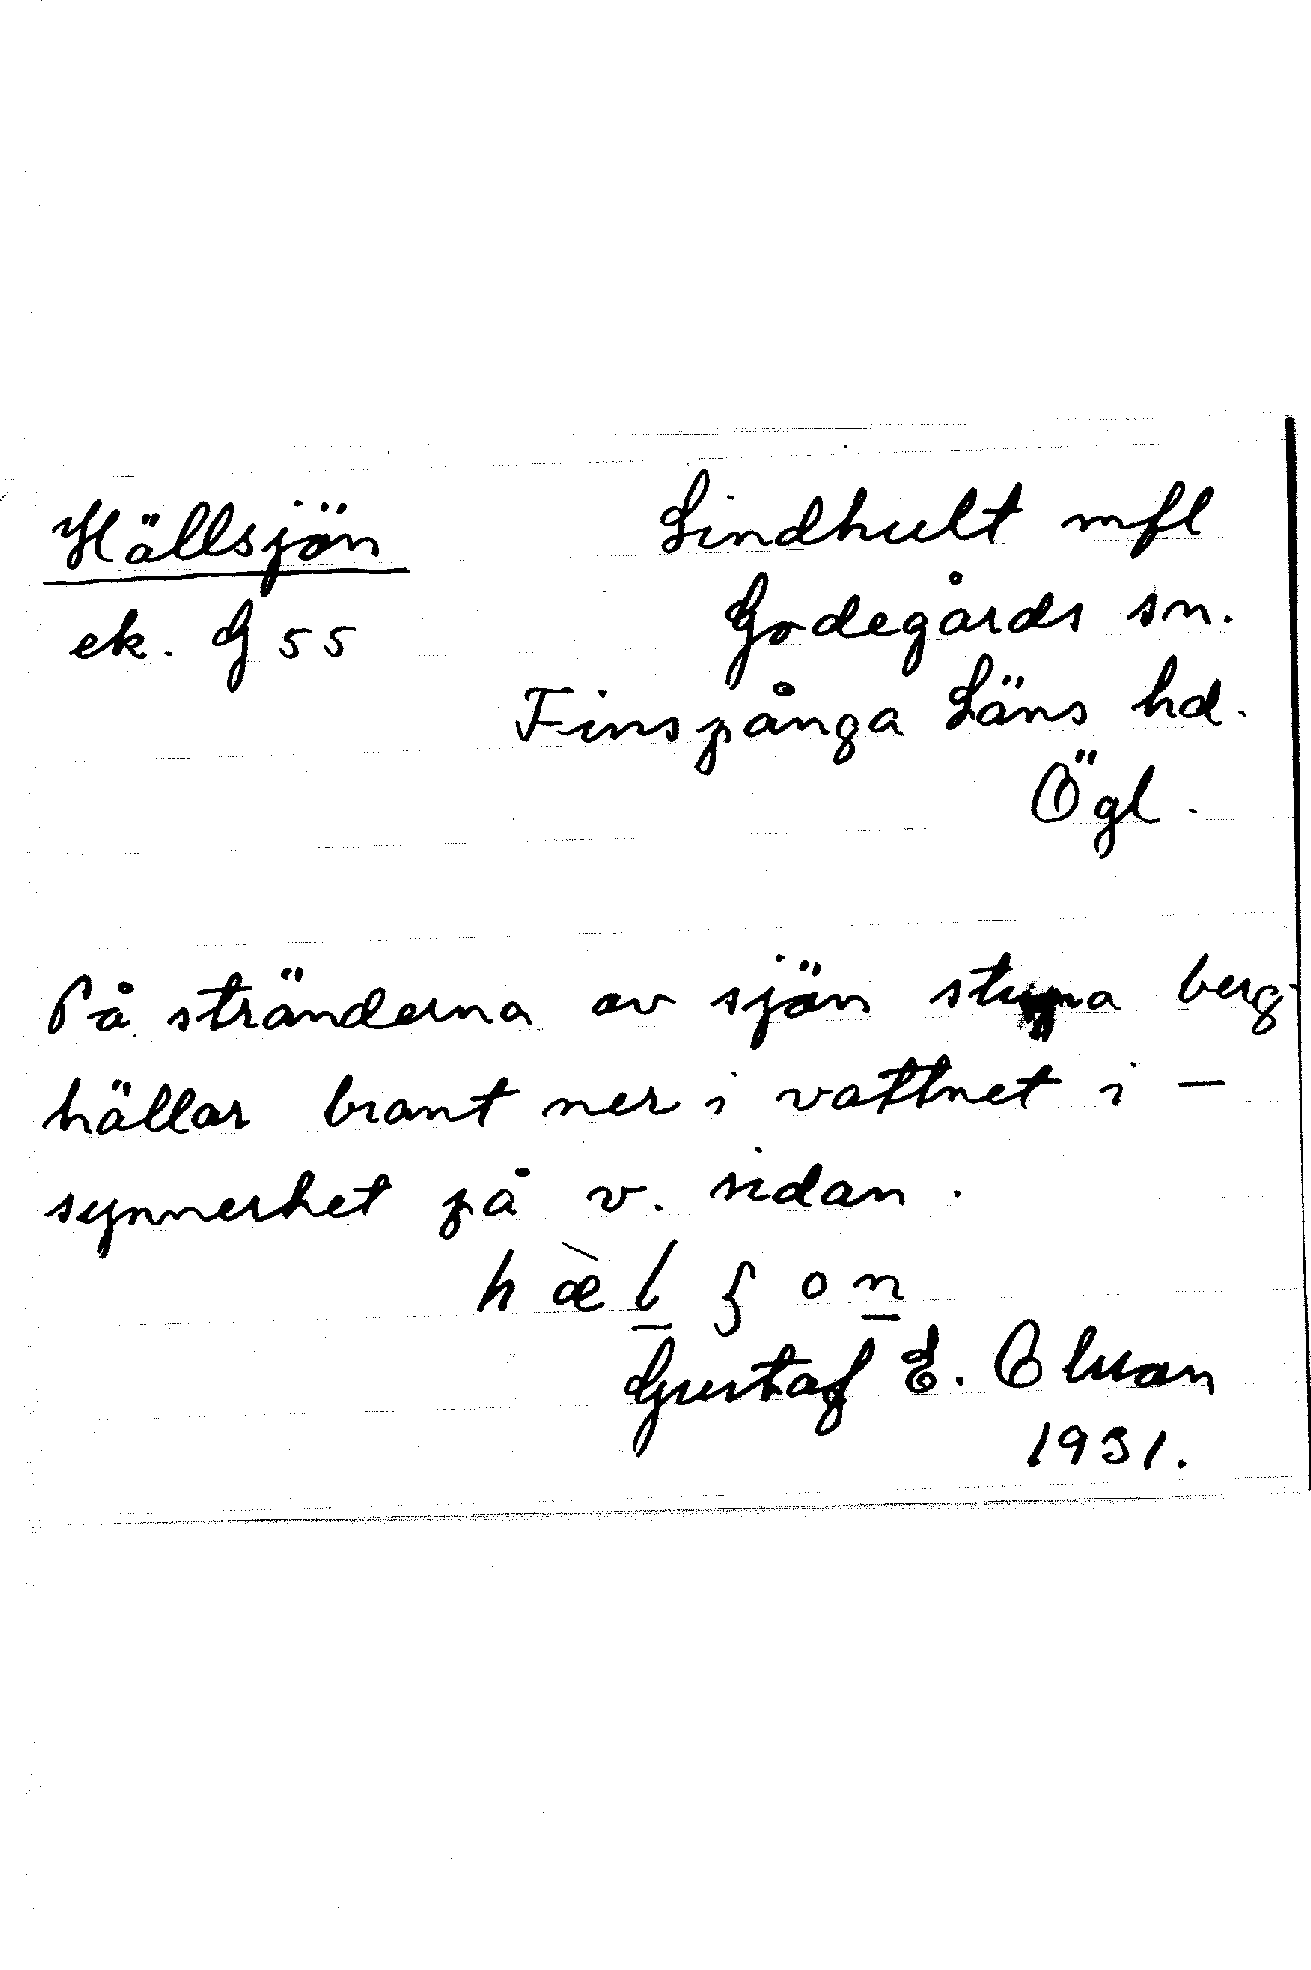 Hällsjön
ek. G 55
Lindhult mfl
Godegårds sn.
Finspånga Läns hd.
Ögl.
På stränderna av sjön stupa berg-
hällar brant ner i vattnet i -
synnerhet på v. sidan.
Gustaf E. Olsson
1931.